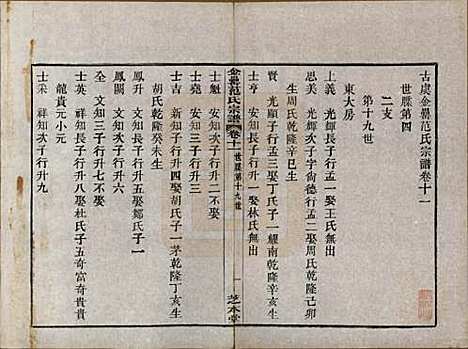 古虞金罍范氏宗譜卷十一
世牒第四
二支
第十九世
東大房
上義 光輝長子行孟一娶王氏無出
思美 光輝次子字尚德行孟二娶周氏乾隆己卯
生周氏乾隆辛巳生
賢 光顯子行孟三娶丁氏子一耀南乾隆辛亥生
士亨 安知長子行升一娶林氏無出
金罍范氏宗譜 卷十一 世牒第十九世
一
芝本堂
士魁 安知次子行升二不娶
士堯 安知三子行升三不娶
士吉 新知子行升四娶胡氏子一茅乾隆丁亥生
胡氏乾隆癸未生
鳳升 文知長子行升五娶鄒氏子一
鳳閣 文知次子行升六
士文 文知三子行升七不娶
士全 祥知長子行升八娶杜氏子五奇富奇貴奇
龍貴元小元
士采 祥知次子行升九